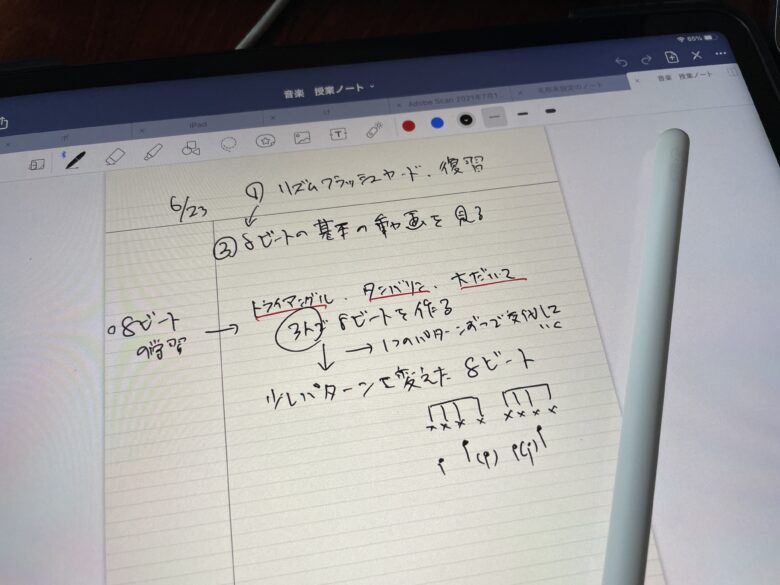 65%
音楽 授業ノート
iPad
Adobe Scan 2021年7月1...
名称未設定のノート
音楽 授業ノート
6/23
① リズムフラッシュカード、復習
② 8ビートの基本の動画を見る
○8ビート
の学習
トライアングル、タンバリン、大だいこ
3人で 8ビートを作る
→ 1つのパターンずつで交代して
いく
少しパターンを変えた 8ビート